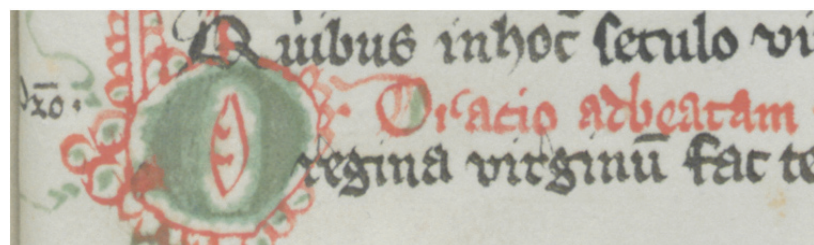 Quibus in hoc seculo vi
Oracio ad beatam
O regina virginū fac te